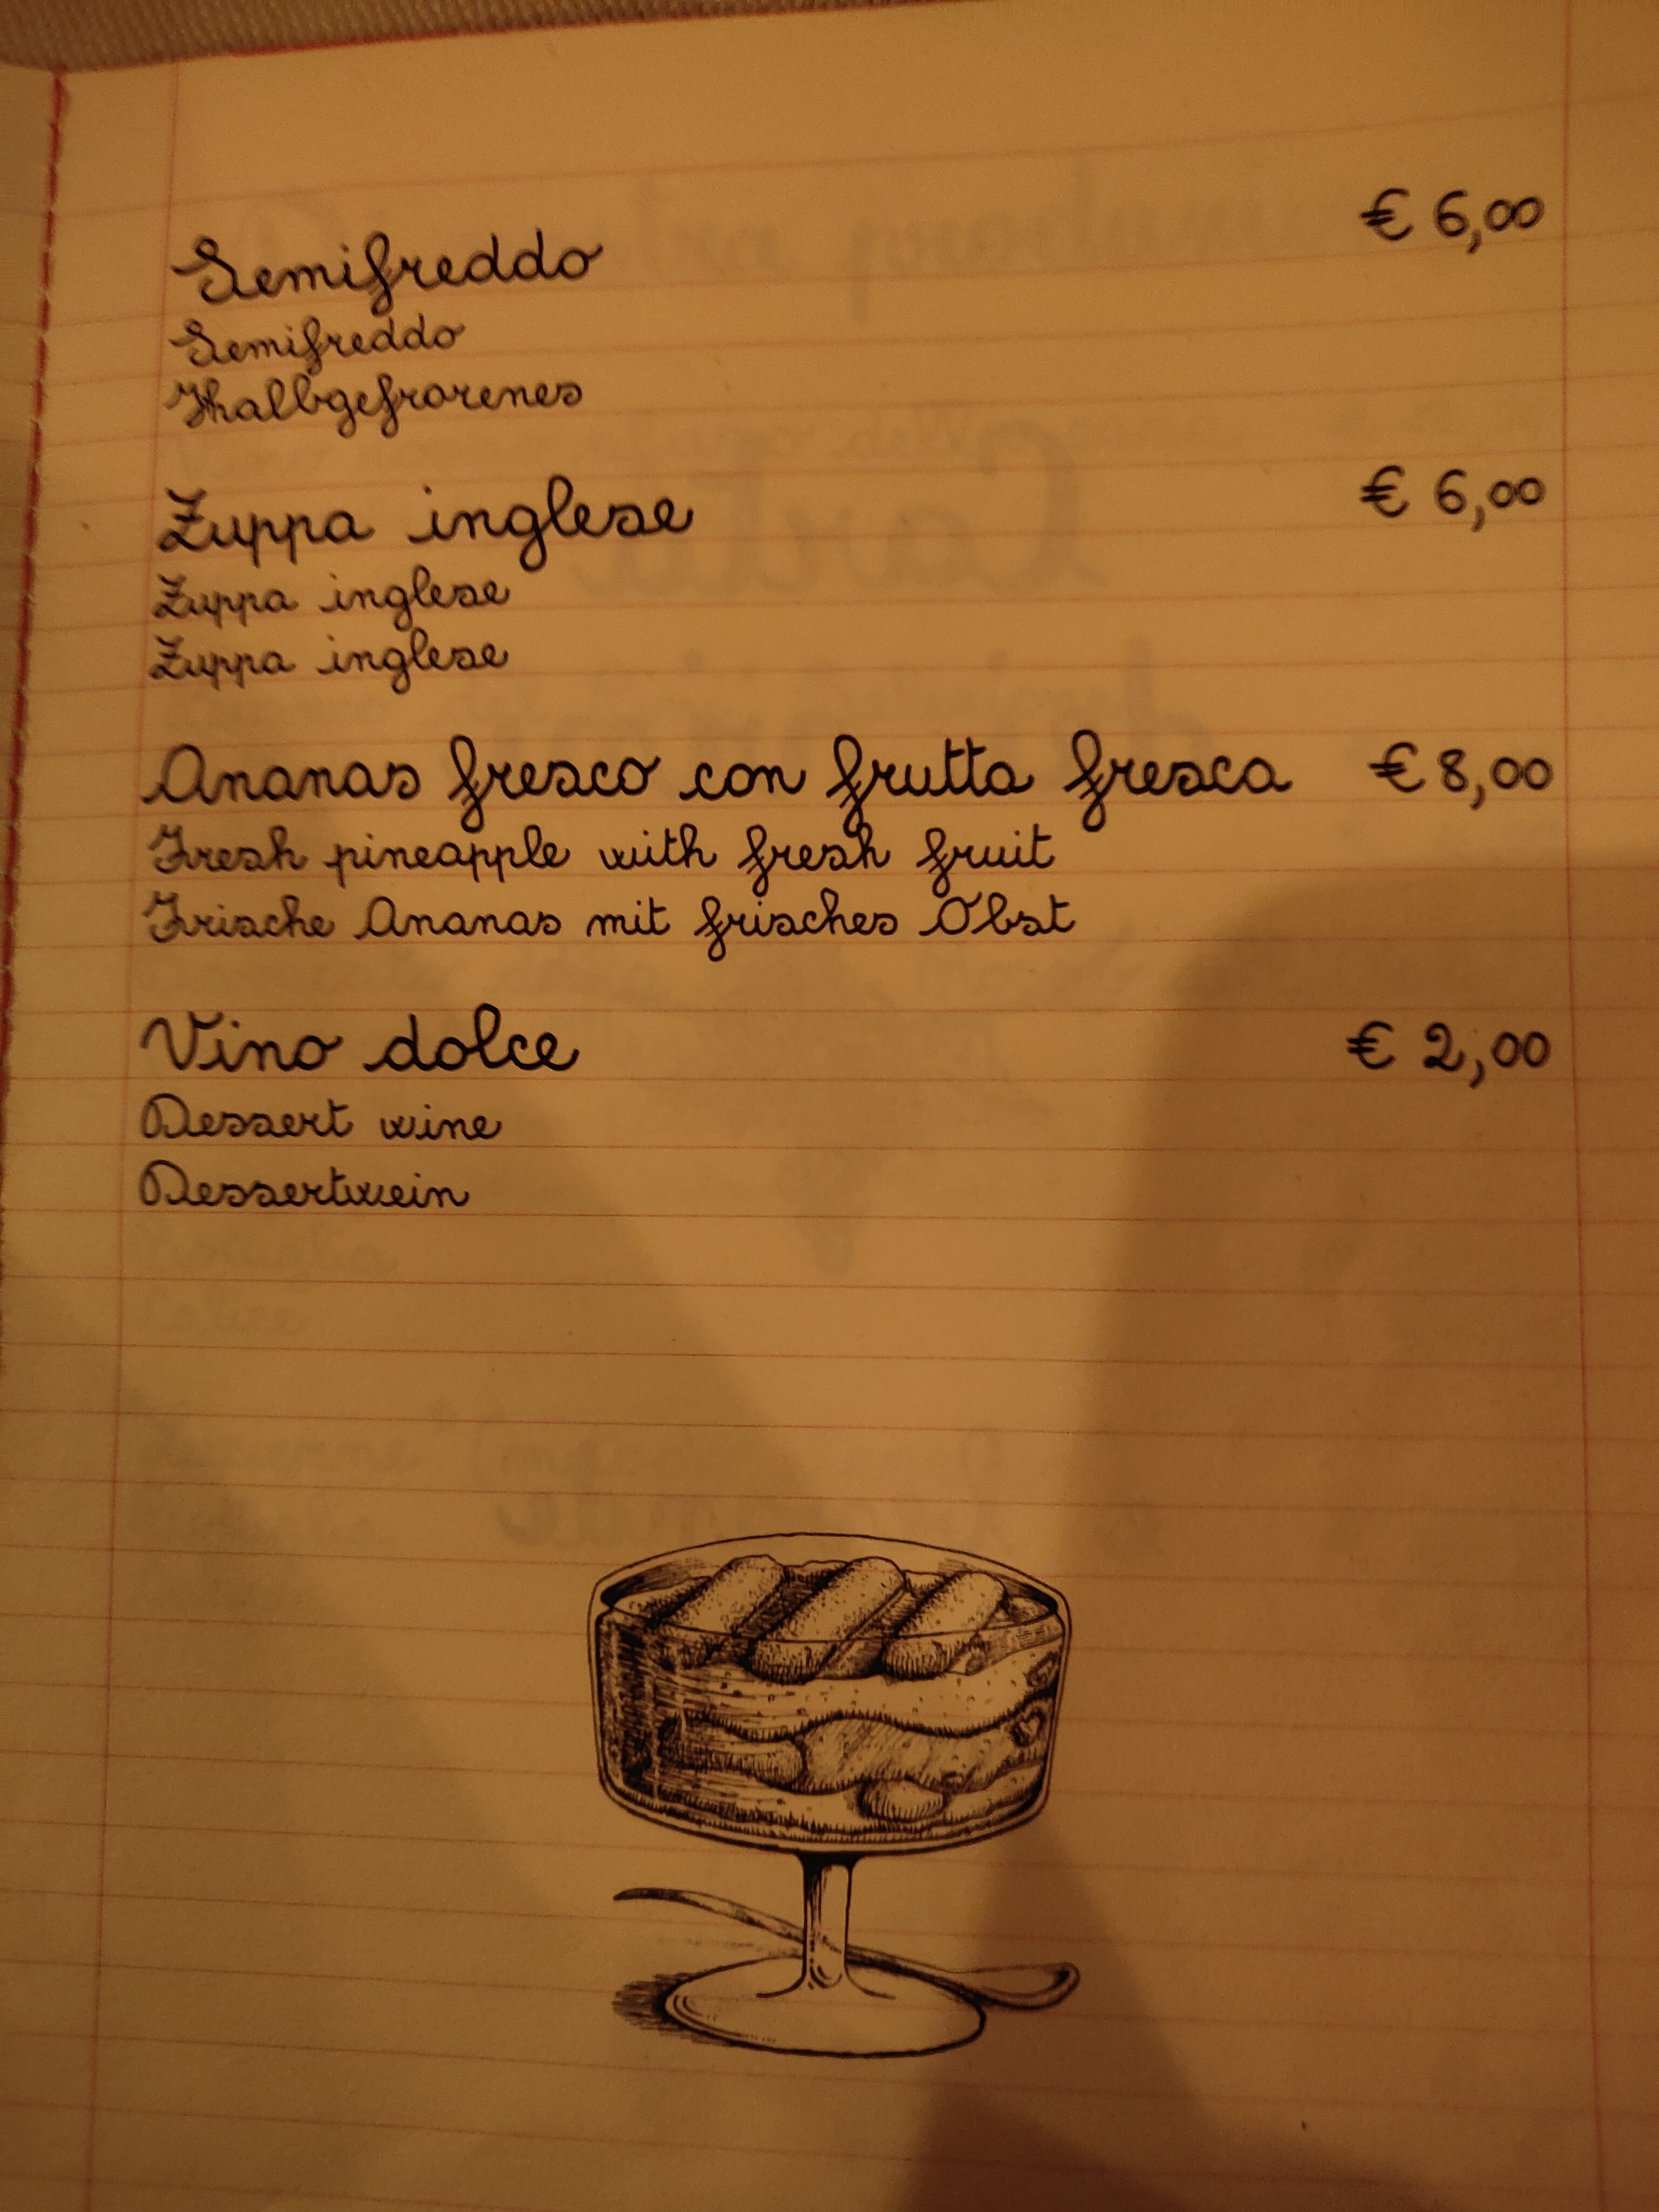 Semifreddo € 6,00
Semifreddo
Halbgefrorenes
Zuppa inglese € 6,00
Zuppa inglese
Zuppa inglese
Ananas fresco con frutta fresca € 8,00
Fresh pineapple with fresh fruit
Frische Ananas mit frisches Obst
Vino dolce € 2,00
Dessert wine
Dessertwein